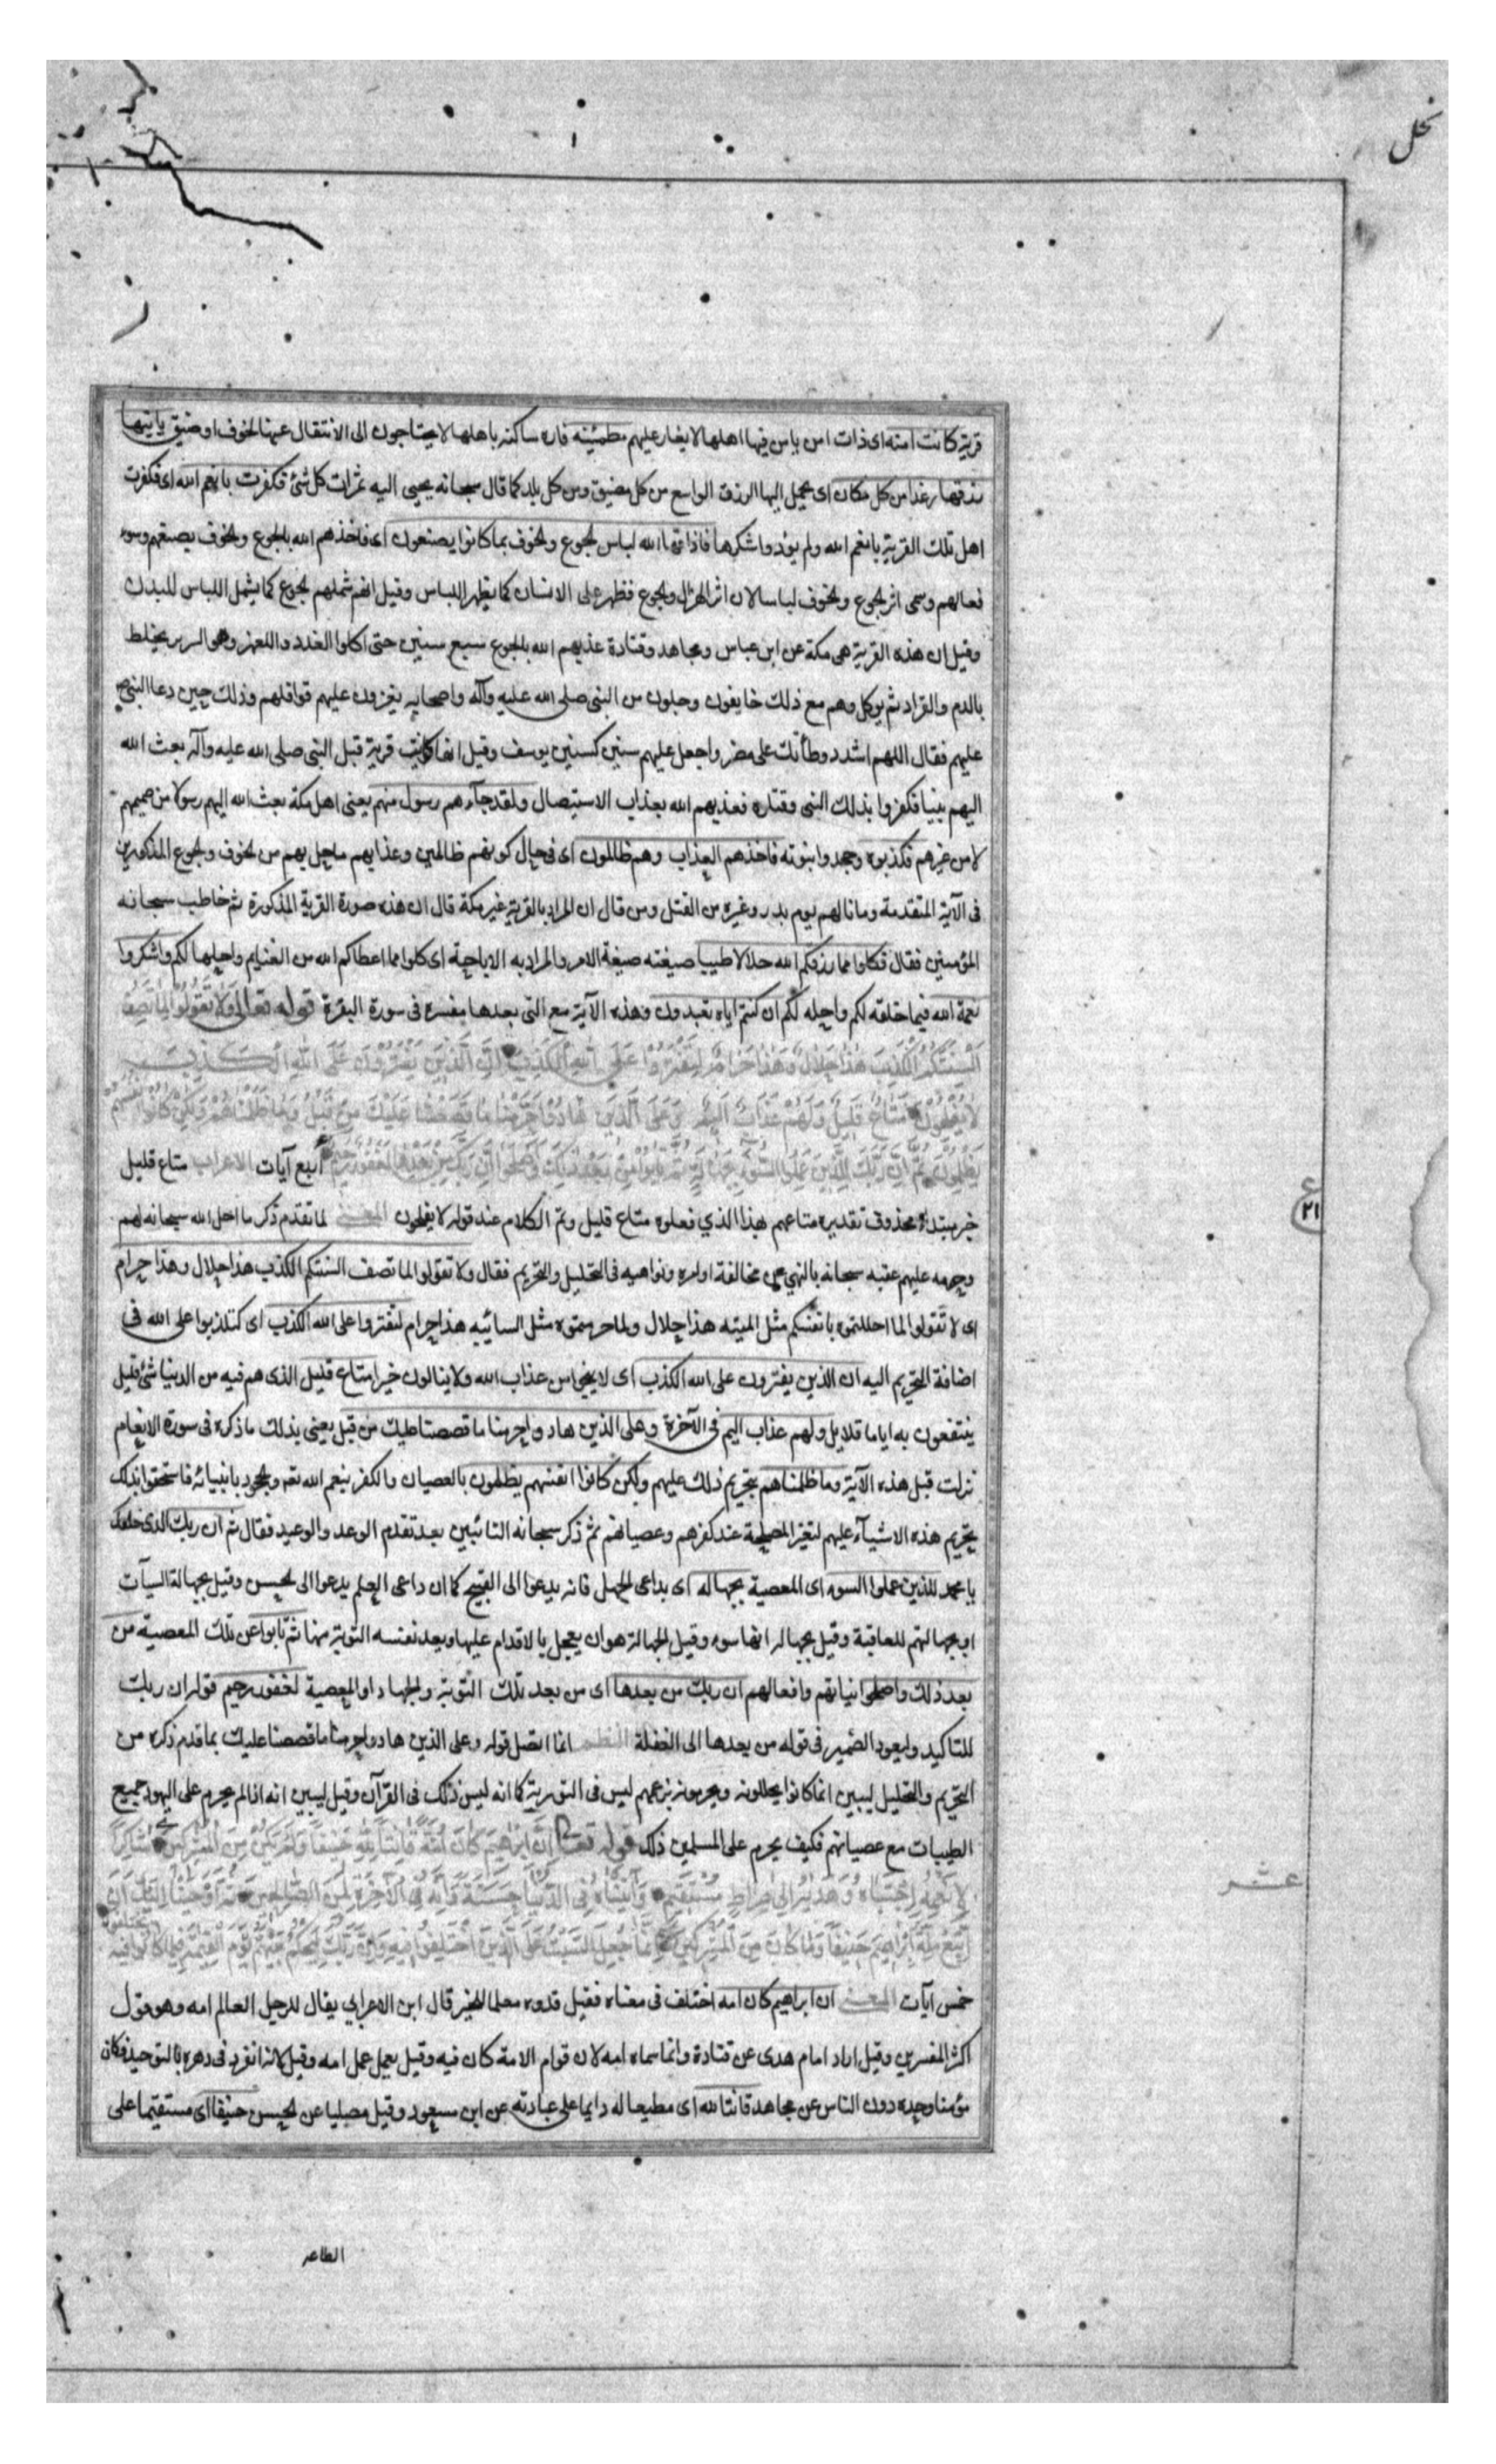 نحل
قرية كانت امنه اى ذات امن يامن فيها اهلها لا يغار عليهم مطمئينه قاره ساكنه باهلها لا يحتاجون الى الانتقال عنها لخوف او ضيق ياتيها
رزقها رغدا من كل مكان اى يحمل اليها الرزق الواسع من كل مضيق ومن كل بلد كما قال سبحانه يجبى اليه ثمرات كل شئ فكفرت بانعم الله اى فكفرت
اهل تلك القرية بانعم الله ولم يؤدوا شكرها فاذاقها الله لباس الجوع والخوف بما كانوا يصنعون اى فاخذهم الله بالجوع والخوف بصنعهم وسوء
فعالهم وسمى اثر الجوع والخوف لباسا لان اثر الهزال والجوع فظهر على الانسان كما يظهر اللباس وقيل انهم شملهم الجوع كما يشمل اللباس للبدن
وقيل ان هذه القرية هى مكة عن ابن عباس ومجاهد وقتادة عذبهم الله بالجوع سبع سنين حتى اكلوا القدد والعلهز وهو الوبر يخلط
بالدم والقراد ثم يوكل وهم مع ذلك خايفون وجلون من النبى صلى الله عليه وآله واصحابه يغيرون عليهم قوافلهم وذلك حين دعا النبى ص
عليهم فقال اللهم اشدد وطأتك على مضر واجعل عليهم سنين كسنين يوسف وقيل انها كانت قرية قبل النبى صلى الله عليه وآله بعث الله
اليهم نبيا فكفروا بذلك النبى وقتلوه فعذبهم الله بعذاب الاستيصال ولقد جآءهم رسول منهم يعنى اهل مكة بعث الله اليهم رسولا من صميمهم
لا من غيرهم فكذبوه وجحدوا نبوته فاخذهم العذاب وهم ظالمون اى فى حال كونهم ظالمين وعذابهم ما حل بهم من الخوف والجوع المذكورين
فى الآية المتقدمة وما نالهم يوم بدر وغيره من القتل ومن قال ان المراد بالقرية غير مكة قال ان هذه صورة القرية المذكورة ثم خاطب سبحانه
المؤمنين فقال فكلوا مما رزقكم الله حلالا طيبا صيغته صيغة الامر والمراد به الاباحة اى كلوا مما اعطاكم الله من الغنايم واحلها لكم واشكروا
نعمة الله فيما خلقه لكم واحله لكم ان كنتم اياه تعبدون وهذه الآية مع التى بعدها مفسره فى سورة البقرة قوله تعالى وَلَا تَقُولُوا لِمَا تَصِفُ
اَلْسِنَتُكُمُ الْكَذِبَ هٰذَا حَلَالٌ وَهٰذَا حَرَامٌ لِتَفْتَرُوا عَلَى اللهِ الْكَذِبَ اِنَّ الَّذِينَ يَفْتَرُونَ عَلَى اللهِ الْكَذِبَ
لَا يُفْلِحُونَ مَتَاعٌ قَلِيلٌ وَلَهُمْ عَذَابٌ اَلِيمٌ وَعَلَى الَّذِينَ هَادُوا حَرَّمْنَا مَا قَصَصْنَا عَلَيْكَ مِنْ قَبْلُ وَمَا ظَلَمْنَاهُمْ وَلٰكِنْ كَانُوا اَنْفُسَهُمْ
يَظْلِمُونَ ثُمَّ اِنَّ رَبَّكَ لِلَّذِينَ عَمِلُوا السُّوءَ بِجَهَالَةٍ ثُمَّ تَابُوا مِنْ بَعْدِ ذٰلِكَ وَاَصْلَحُوا اِنَّ رَبَّكَ مِنْ بَعْدِهَا لَغَفُورٌ رَحِيمٌ اربع آيات الاعراب متاع قليل
خبر مبتداء محذوف تقديره متاعهم هذا الذي فعلوه متاع قليل وتم الكلام عند قوله لا يفلحون المعنى لما تقدم ذكر ما احل الله سبحانه لهم
وحرمه عليهم عقبه سبحانه بالنهي عن مخالفة اوامره ونواهيه فى التحليل والتحريم فقال ولا تقولوا لما تصف السنتكم الكذب هذا حلال وهذا حرام
اى لا تقولوا لما احللتموه بانفسكم مثل الميته هذا حلال ولما حرمتموه مثل السائبه هذا حرام لتفتروا على الله الكذب اى لتكذبوا على الله فى
اضافة التحريم اليه ان الذين يفترون على الله الكذب اى لا ينجوا من عذاب الله ولا ينالون خيرا متاع قليل الذى هم فيه من الدنيا شئ قليل
ينتفعون به اياما قلايل ولهم عذاب اليم فى الآخرة وعلى الذين هادوا حرمنا ما قصصنا عليك من قبل يعنى بذلك ما ذكره فى سورة الانعام
نزلت قبل هذه الآية وما ظلمناهم بتحريم ذلك عليهم ولكن كانوا انفسهم يظلمون بالعصيان والكفر بنعم الله تعه والجحود بانبيائه فاستحقوا بذلك
تحريم هذه الاشيآء عليهم لتغير المصلحة عند كفرهم وعصيانهم ثم ذكر سبحانه التائبين بعد تقدم الوعد والوعيد فقال ثم ان ربك الذى خلقك
يا محمد للذين عملوا السوء اى المعصية بجهاله اى بداعى الجهل فانه يدعوا الى القبيح كما ان داعى العلم يدعوا الى الحسن وقيل بجهالة السيآت
او بجهالتهم للعاقبة وقيل بجهاله انها سوء وقيل الجهالة هو ان يعجل بالاقدام عليها ويعد نفسه التوبة منها ثم تابوا عن تلك المعصية من
بعد ذلك واصلحوا نياتهم وافعالهم ان ربك من بعدها اى من بعد تلك التوبة والجهاد او المعصية لغفور رحيم قوله ان ربك
للتاكيد وليعود الضمير فى قوله من بعدها الى الفعلة النظم انما اتصل قوله وعلى الذين هادوا حرمنا ما قصصنا عليك بما قدم ذكره من
التحريم والتحليل ليبين انما كانوا يحللونه ويحرمونه بزعمهم ليس فى التورية كما انه ليس ذلك فى القرآن وقيل ليبين انه اذا لم يحرم على اليهود جميع
الطيبات مع عصيانهم فكيف يحرم على المسلمين ذلك قوله تعالى اِنَّ اِبْرٰهِيمَ كَانَ اُمَّةً قَانِتًا لِلّٰهِ حَنِيفًا وَلَمْ يَكُ مِنَ الْمُشْرِكِينَ شَاكِرًا
لِاَنْعُمِهِ اجْتَبَاهُ وَهَدٰيهُ اِلٰى صِرَاطٍ مُسْتَقِيمٍ وَآتَيْنَاهُ فِى الدُّنْيَا حَسَنَةً وَاِنَّهُ فِى الْآخِرَةِ لَمِنَ الصَّالِحِينَ ثُمَّ اَوْحَيْنَا اِلَيْكَ اَنِ
اتَّبِعْ مِلَّةَ اِبْرَاهِيمَ حَنِيفًا وَمَا كَانَ مِنَ الْمُشْرِكِينَ اِنَّمَا جُعِلَ السَّبْتُ عَلَى الَّذِينَ اخْتَلَفُوا فِيهِ وَاِنَّ رَبَّكَ لَيَحْكُمُ بَيْنَهُمْ يَوْمَ الْقِيٰمَةِ فِيمَا كَانُوا فِيهِ يَخْتَلِفُونَ
خمس آيات المعنى ان ابراهيم كان امه اختلف فى معناه فقيل قدوه معلما للخير قال ابن الاعرابي يقال للرجل العالم امه وهو قول
اكثر المفسرين وقيل اراد امام هدى عن قتادة وانما سماه امه لان قوام الامة كان فيه وقيل يعمل عمل امه وقيل لانه انفرد فى دهره بالتوحيد فكان
مؤمنا وحده دون الناس عن مجاهد قانتا لله اى مطيعا له دايما على عبادته عن ابن مسعود وقيل مصليا عن الحسن حنيفا اى مستقيما على
ع
٢١
عشر
الطاعه